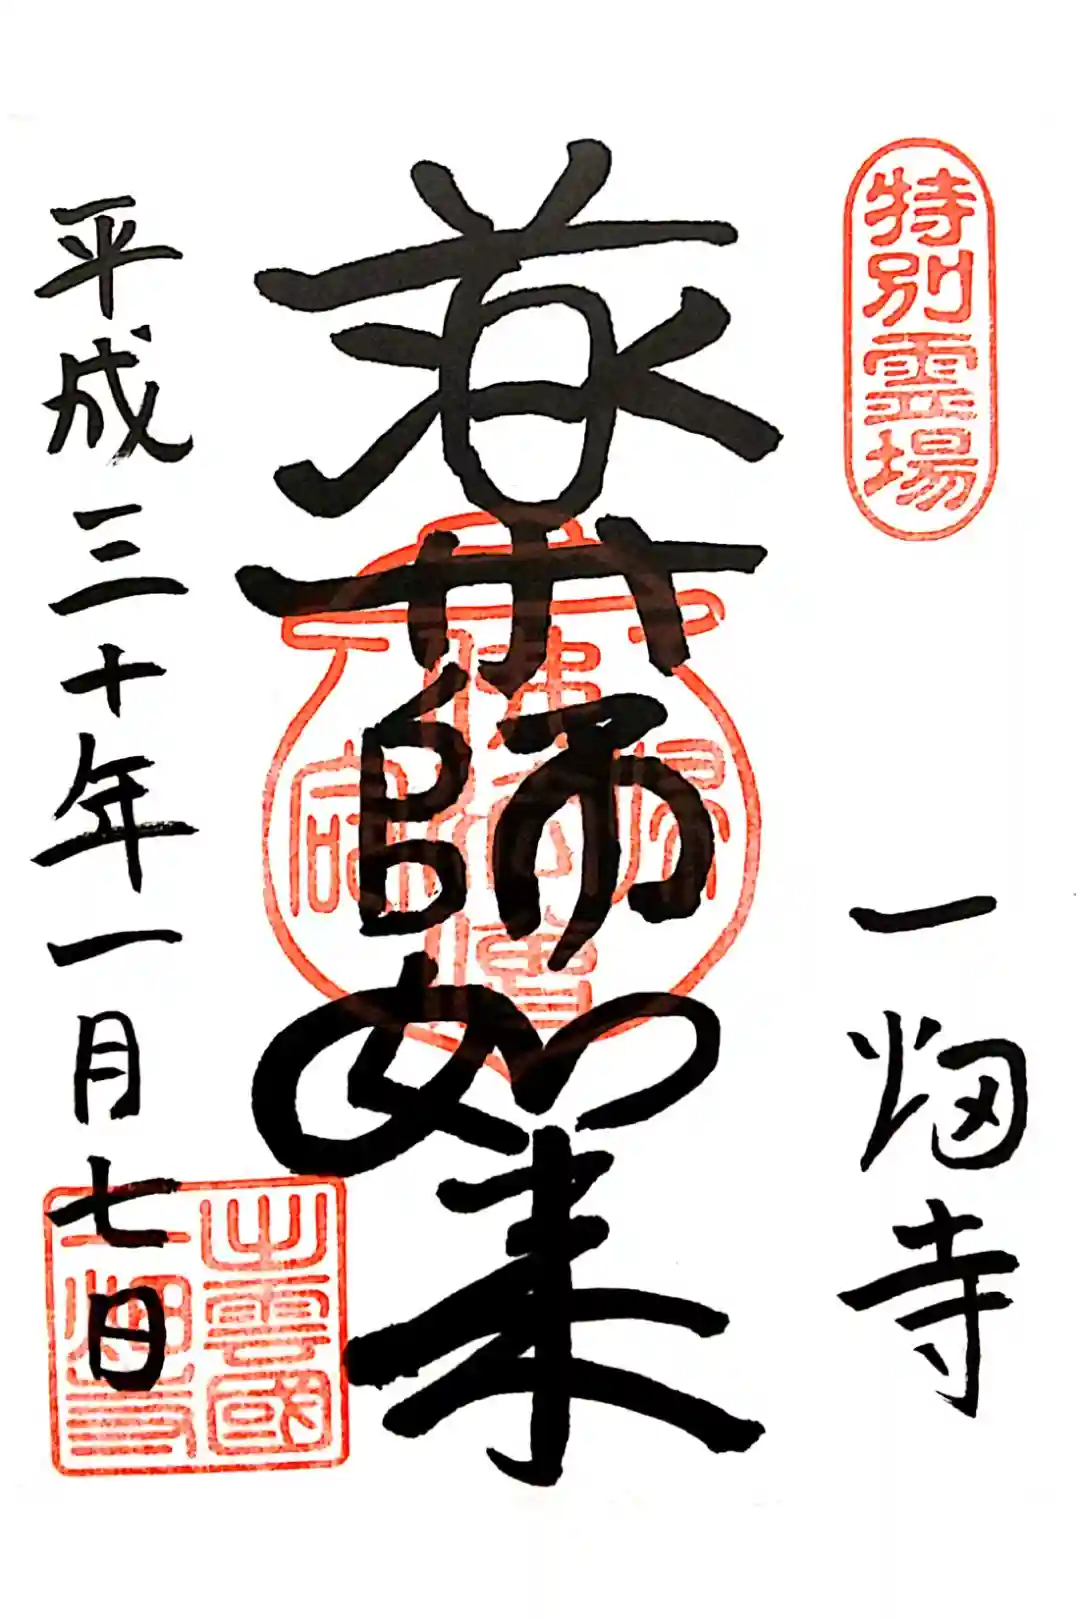 特別霊場
一畑寺
薬師如来
平成三十年一月七日
出雲國
一畑寺